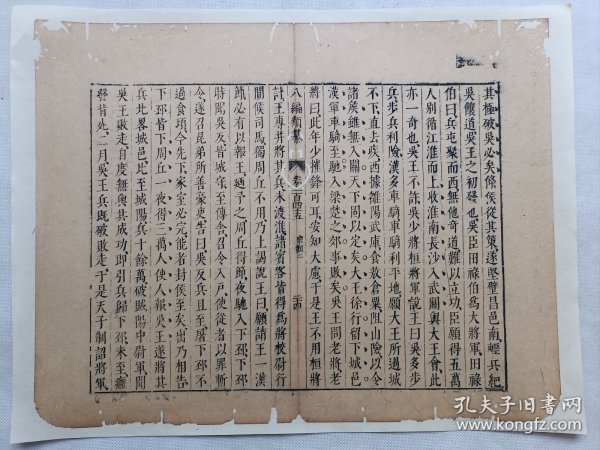 其極破吳必矣條侯從其策遂堅壁昌邑南輕兵絕
吳饟道吳王之初發也吳臣田祿伯爲大將軍田祿
伯曰兵屯聚而西無他奇道難以立功臣願得五萬
人別循江淮而上收淮南長沙入武關與大王會此
亦一奇也吳王不許吳少將桓將軍說王曰吳多步
兵步兵利險漢多車騎車騎利平地願大王所過城
不下直去疾西據雒陽武庫食敖倉粟阻山險以令
諸侯雖無入關天下固以定矣大王徐行留下城邑
漢軍車騎至馳入梁楚之郊事敗矣吳王問老將老
將曰此年少摧鋒可耳安知大慮于是王不用桓將
八編類纂 卷一百四五 三十四
計王專并將其兵未渡淮諸賓客皆得爲將校尉行
間候司馬獨周丘不用乃上謁說王曰願請王一漢
節必有以報王廼予之周丘得節夜馳入下邳下邳
時聞吳反皆城守至傳舍召令入戶使從者以罪斬
令遂召昆弟所善豪吏告曰吳反兵且至屠下邳不
過食頃今先下家室必完能者封侯至矣出乃相告
下邳皆下周丘一夜得三萬人使人報吳王遂將其
兵北畧城邑比至城陽兵十餘萬破城陽中尉軍聞
吳王敗走自度無與共成功卽引兵歸下邳未至癰
發背死二月吳王兵既破敗走于是天子制詔將軍
孔夫子旧书网
www.kongfz.com